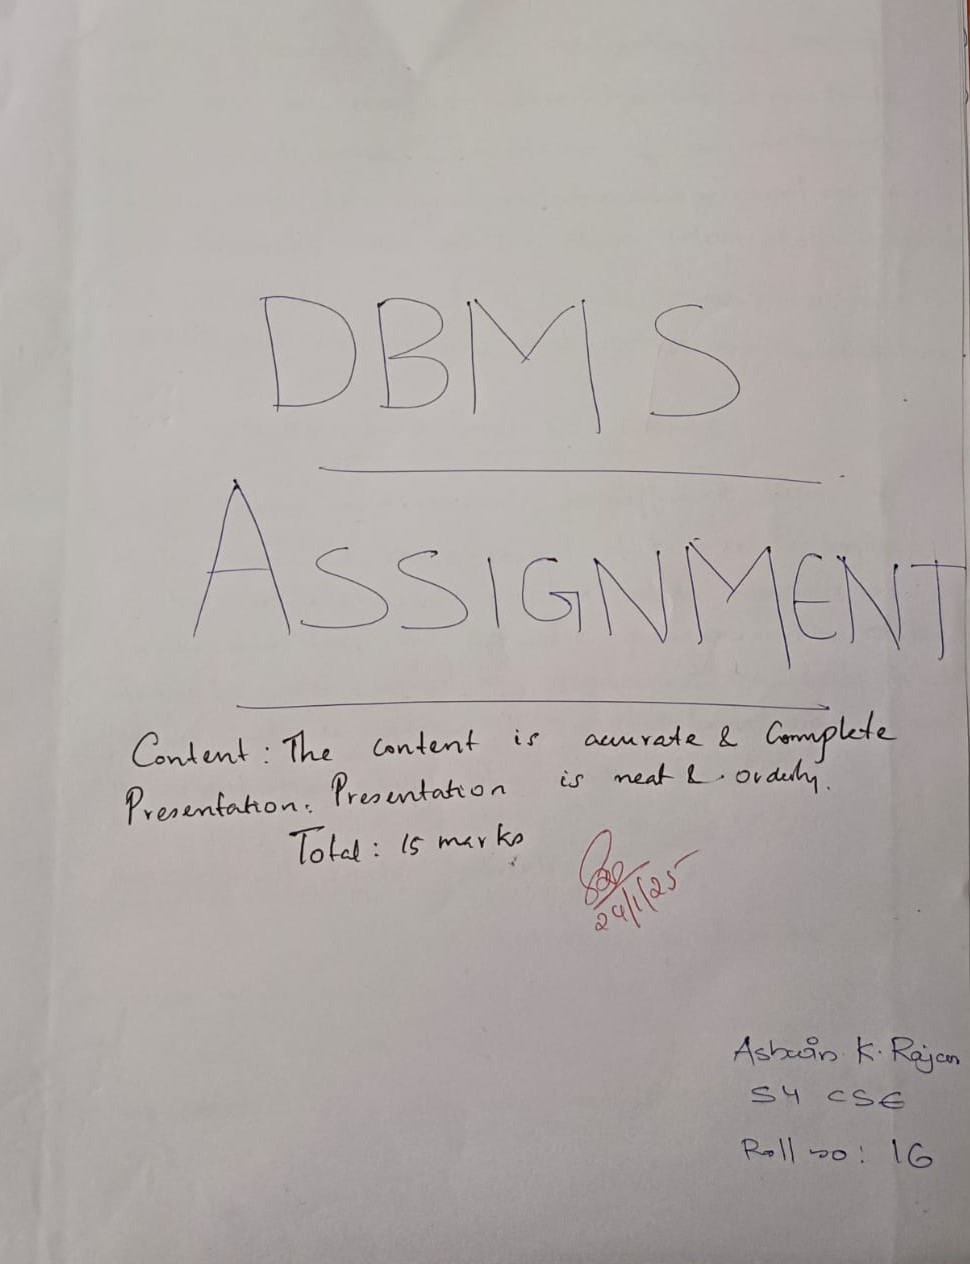 DBMS
ASSIGNMENT
Content: The content is accurate & Complete
Presentation: Presentation is neat & orderly.
Total: 15 marks
24/1/25
Ashwin K. Rajan
S4 CSE
Roll no: 16